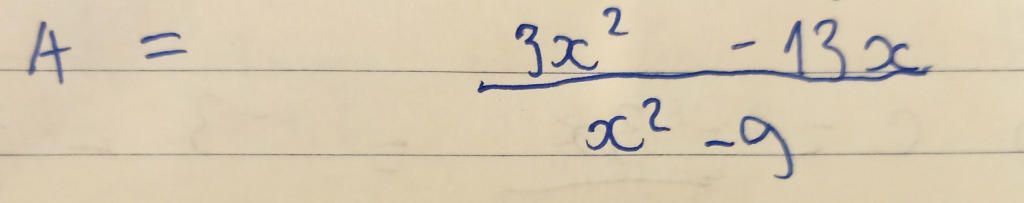 A = 3x² - 13x
x² - 9